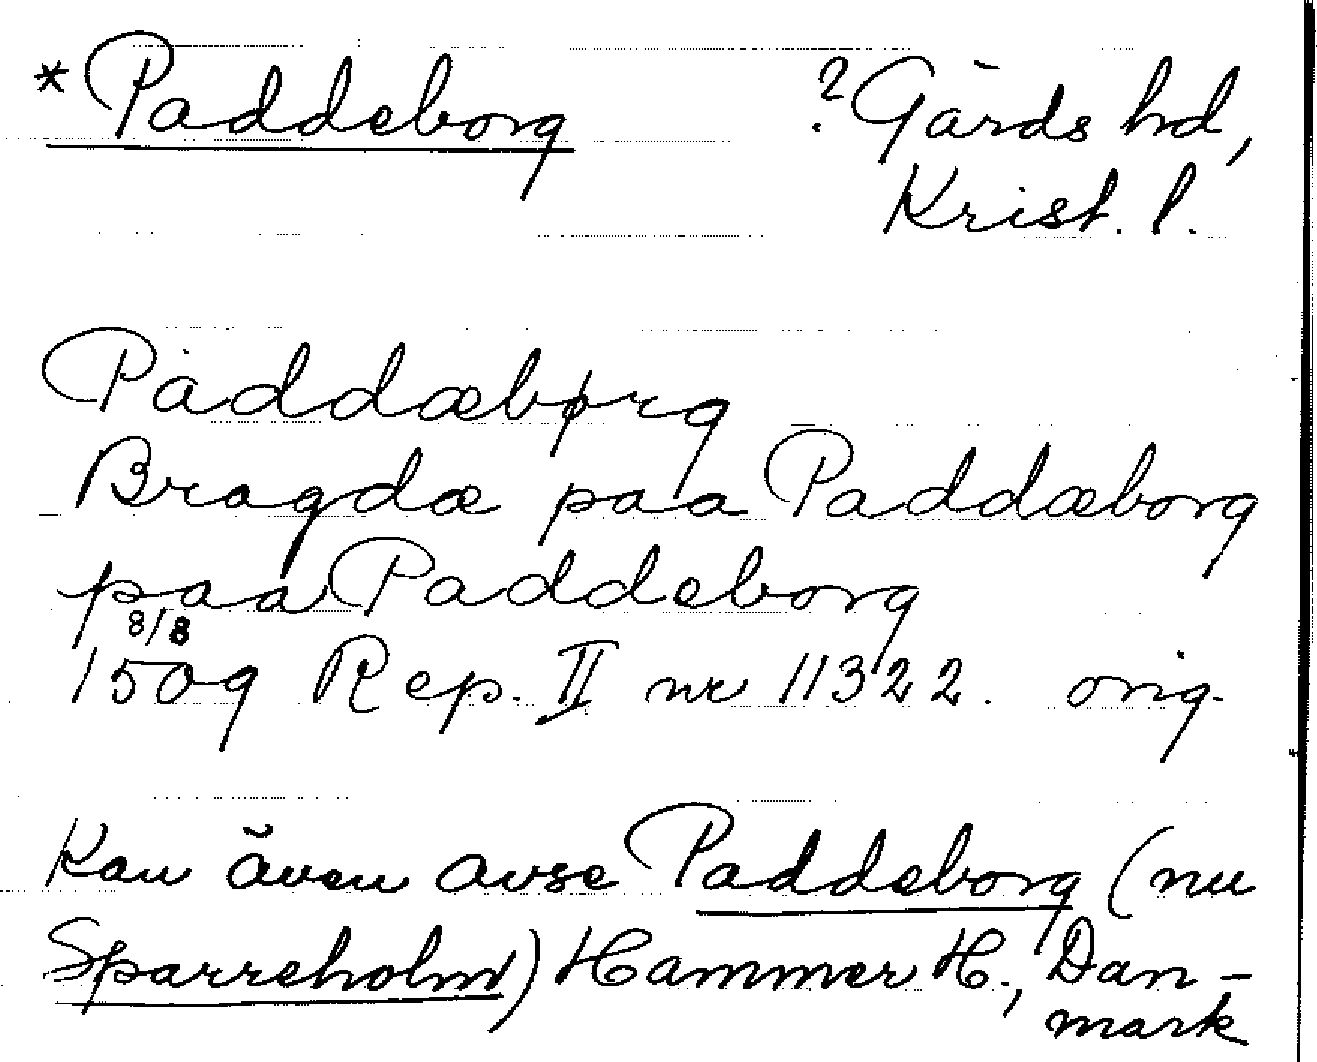 *Paddeborg ?Gärds hd,
Krist. l.
Paddæbørg
Bragdæ paa Paddæborg
paa Paddeborg
8/8
1509 Rep. II nr 11322. orig.
Kan även avse Paddeborg (nu
Sparreholm) Hammer H., Dan-
mark